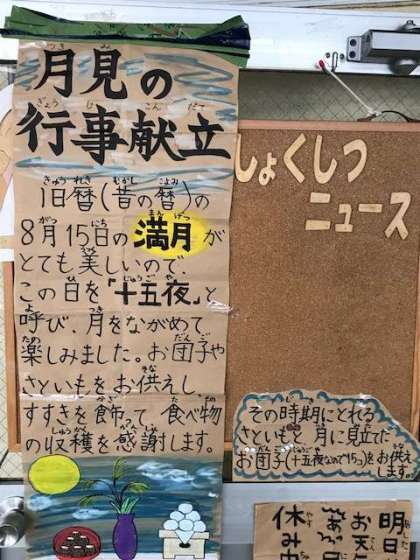 月見の
行事献立
旧暦(昔の暦)の
8月15日の満月が
とても美しいので、
この日を「十五夜」と
呼び、月をながめて
楽しみました。お団子や
さといもをお供えし、
すすきを飾って、食べ物
の収穫を感謝します。
しょくしつ
ニュース
その時期にとれる
さといもと月に見立てた
お団子(十五夜なので15コ)をお供え
します。
明日
お天
休み